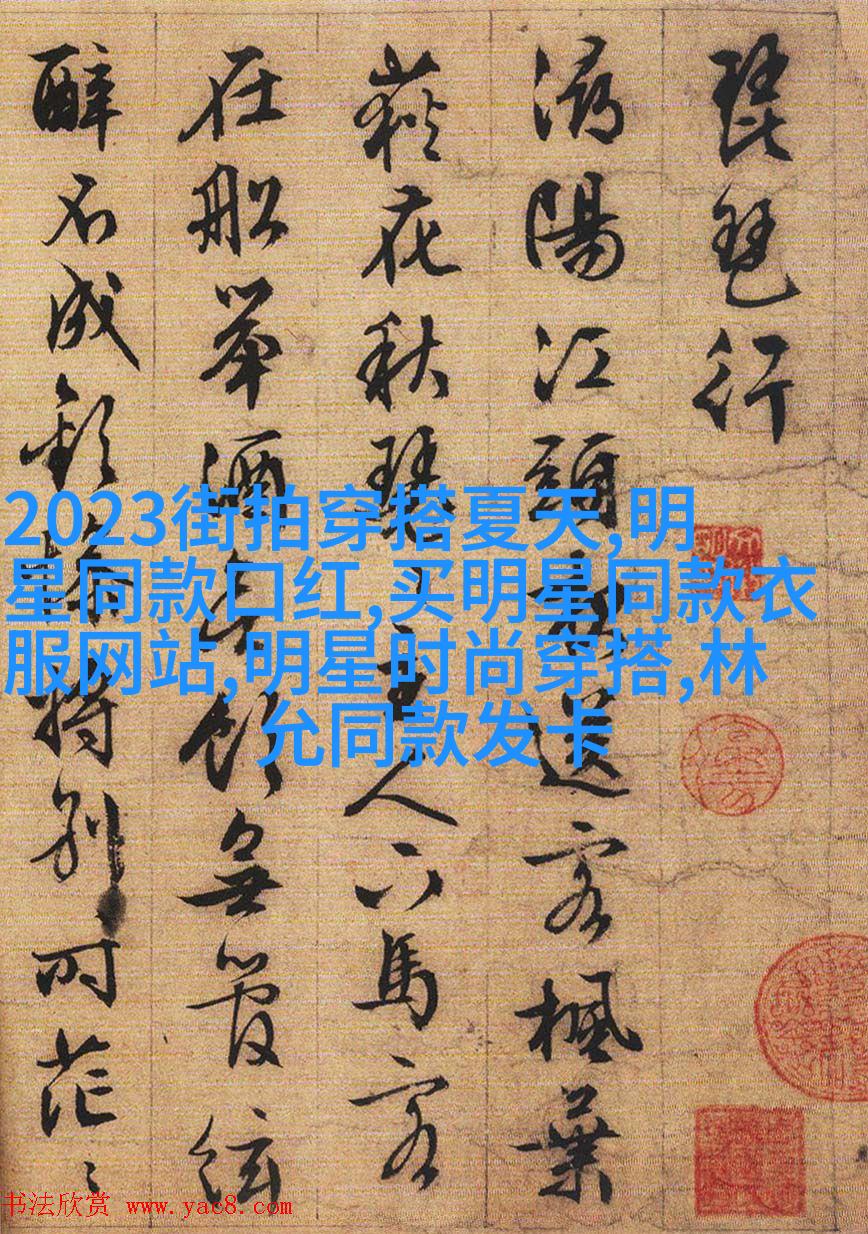 琵琶行
潯陽江頭夜送客楓葉
荻花秋瑟〻主人下馬客
在船舉酒欲飲無管絃
醉不成歡慘將別時茫〻
2023街拍穿搭夏天,明
星同款口红,买明星同款衣
服网站,明星时尚穿搭,林
允同款发卡
书法欣赏 www.yac8.com